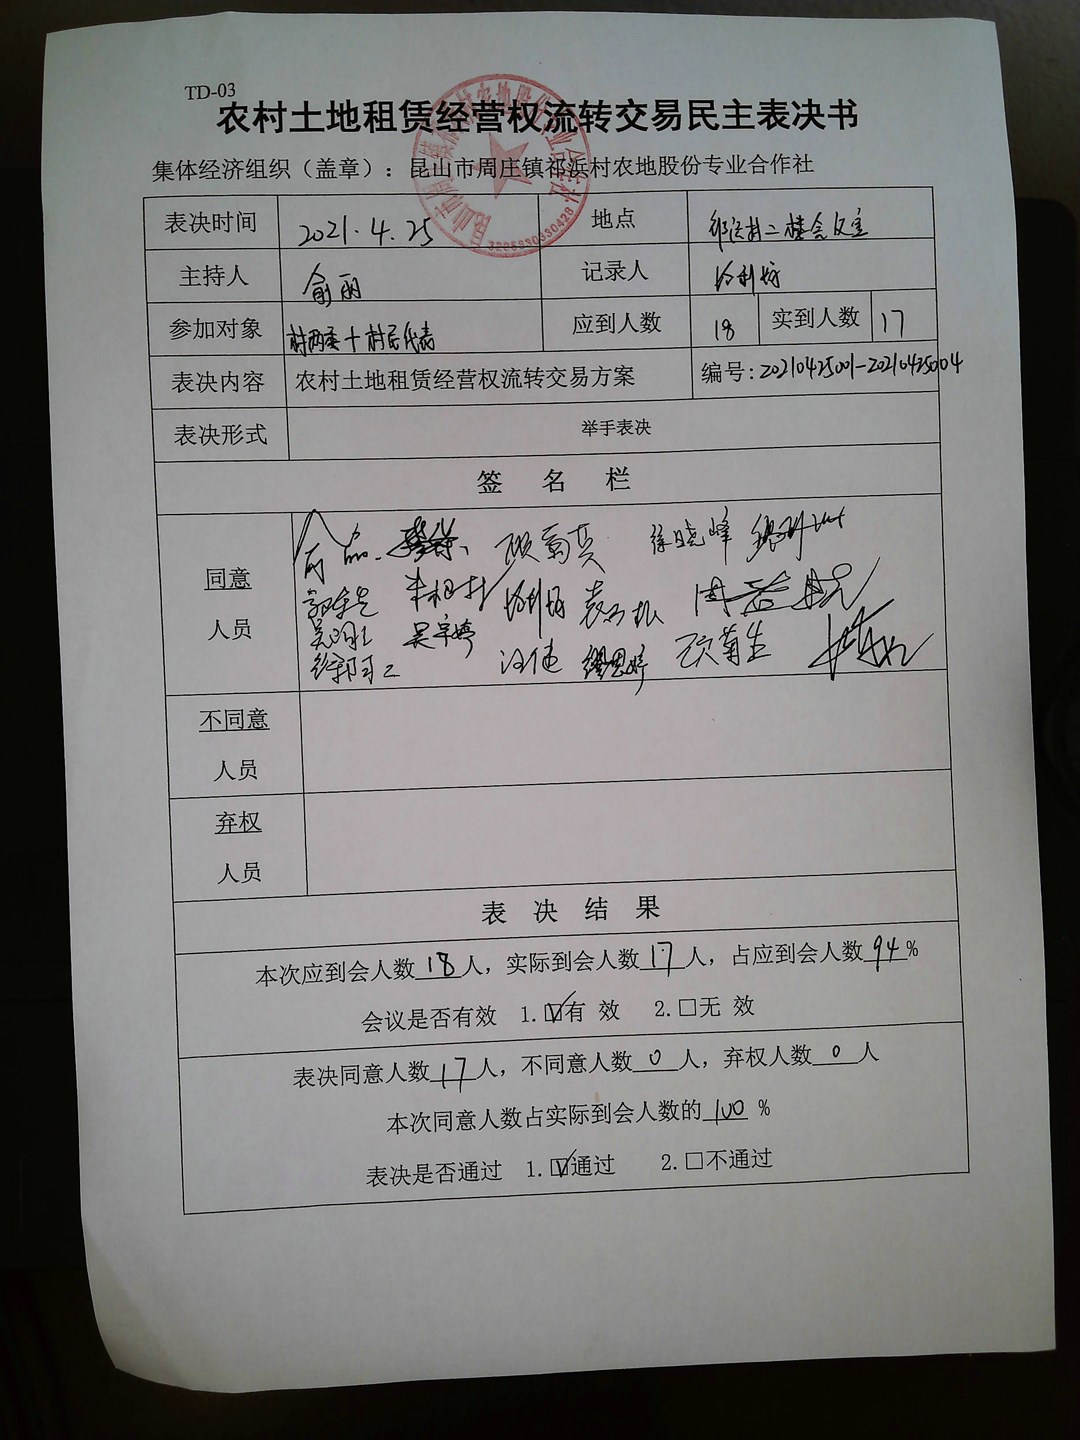 TD-03
农村土地租赁经营权流转交易民主表决书
集体经济组织（盖章）：昆山市周庄镇祁浜村农地股份专业合作社
3205830330428
表决时间 2021.4.25 地点 祁浜村二楼会议室
主持人 俞丽 记录人
参加对象 村两委+村民代表 应到人数 18 实到人数 17
表决内容 农村土地租赁经营权流转交易方案 编号:20210425001-20210425004
表决形式 举手表决
签 名 栏
同意
人员
顾菊英 徐晓峰
朱根林
吴宇婷
汪健 顾菊生
不同意
人员
弃权
人员
表 决 结 果
本次应到会人数18人，实际到会人数17人，占应到会人数94%
会议是否有效 1.☑有 效 2.□无 效
表决同意人数17人，不同意人数0人，弃权人数0人
本次同意人数占实际到会人数的100 %
表决是否通过 1.☑通过 2.□不通过